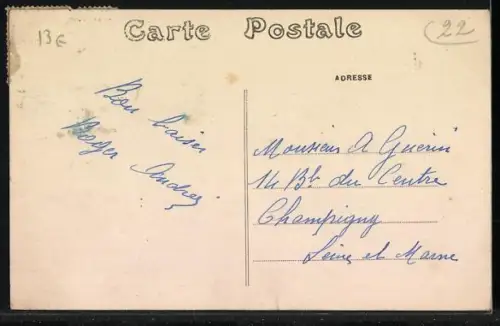 13€
Carte Postale
22
ADRESSE
Bon baiser
Roger Andrée
Monsieur A Guerin
14 Bd du Centre
Champigny
Seine et Marne